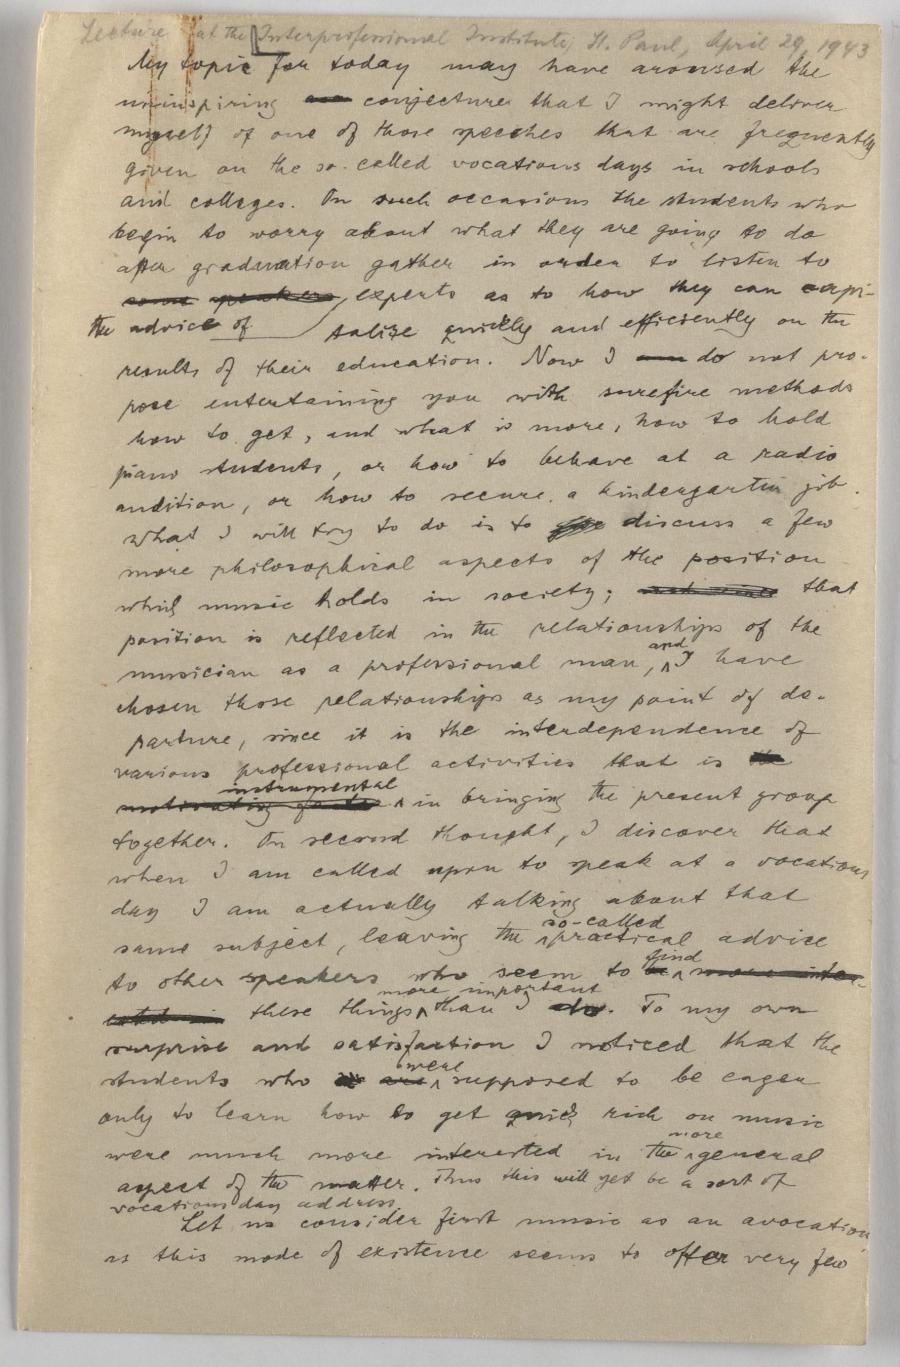 Lecture at the Interprofessional Institute, St. Paul, April 29, 1943
My topic for today may have aroused the
uninspiring conjecture that I might deliver
myself of one of those speeches that are frequently
given on the so-called vocations days in schools
and colleges. On such occasions the students who
begin to worry about what they are going to do
after graduation gather in order to listen to
some speakers, experts as to how they can capi-
the advice of talize quickly and efficiently on the
results of their education. Now I do not pro-
pose entertaining you with surefire methods
how to get, and what is more, how to hold
piano students, or how to behave at a radio
audition, or how to secure a kindergarten job.
What I will try to do is to discuss a few
more philosophical aspects of the position
which music holds in society; that
position is reflected in the relationships of the
musician as a professional man, and I have
chosen those relationships as my point of de-
parture, since it is the interdependence of
various professional activities that is the
motivating factor instrumental in bringing the present group
together. On second thought, I discover that
when I am called upon to speak at a vocations
day I am actually talking about that
same subject, leaving the so-called practical advice
to other speakers who seem to find more inter-
ested in these things more important than I do. To my own
surprise and satisfaction I noticed that the
students who are were supposed to be eager
only to learn how to get quick rich on music
were much more interested in the more general
aspect of the matter. Thus this will yet be a sort of
vocations day address.
Let us consider first music as an avocation
as this mode of existence seems to offer very few